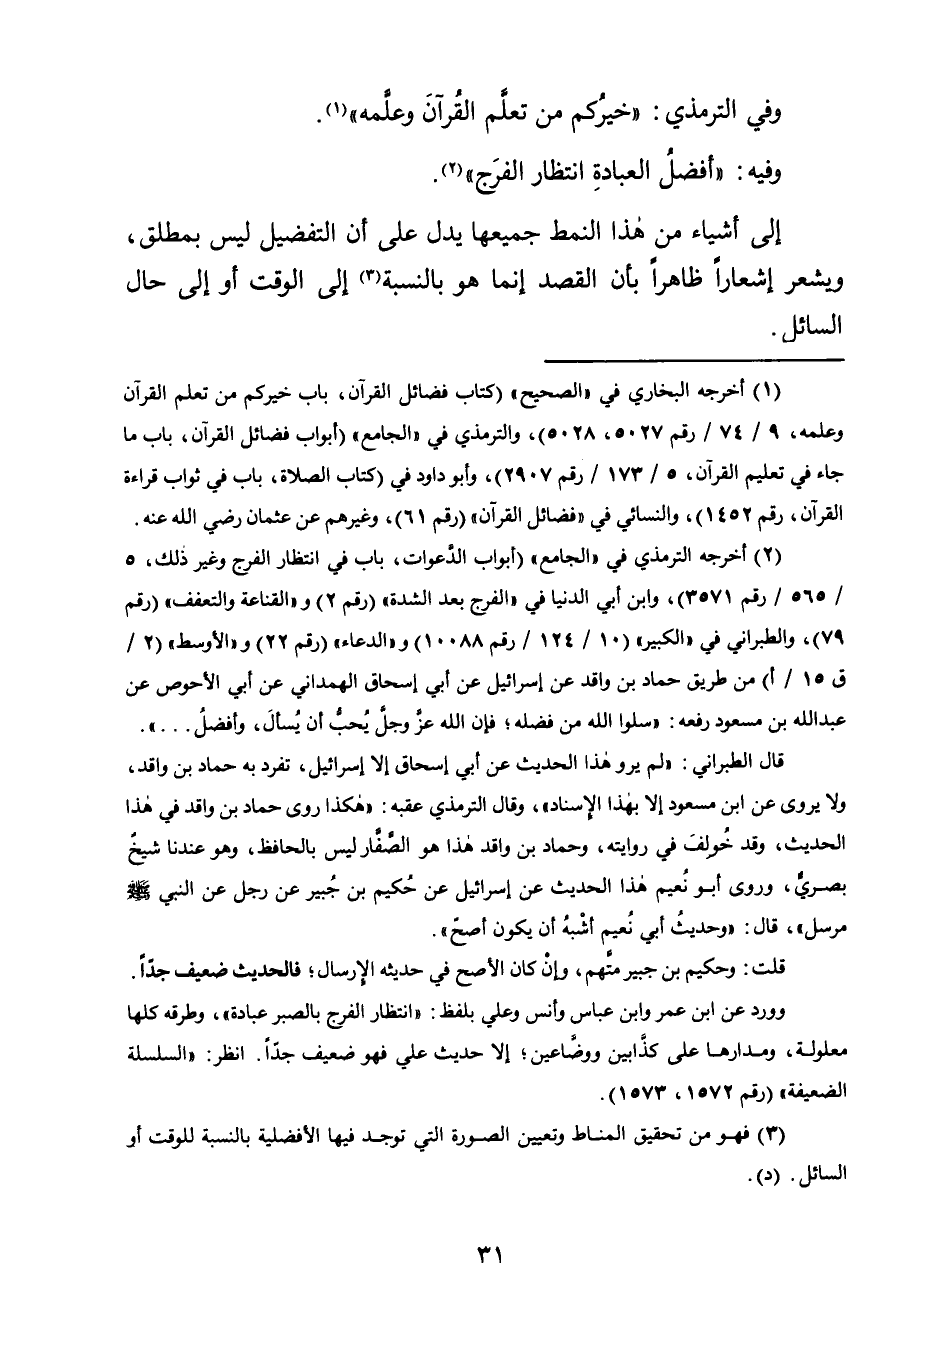 وفي الترمذي: «خيرُكم من تعلَّم القُرآنَ وعلَّمه»(١).
وفيه: «أفضلُ العبادةِ انتظار الفرَج»(٢).
إلى أشياء من هٰذا النمط جميعها يدل على أن التفضيل ليس بمطلق،
ويشعر إشعاراً ظاهراً بأن القصد إنما هو بالنسبة(٣) إلى الوقت أو إلى حال
السائل.
(١) أخرجه البخاري في «الصحيح» (كتاب فضائل القرآن، باب خيركم من تعلم القرآن
وعلمه، ٩ / ٧٤ / رقم ٥٠٢٧، ٥٠٢٨)، والترمذي في «الجامع» (أبواب فضائل القرآن، باب ما
جاء في تعليم القرآن، ٥ / ١٧٣ / رقم ٢٩٠٧)، وأبو داود في (كتاب الصلاة، باب في ثواب قراءة
القرآن، رقم ١٤٥٢)، والنسائي في «فضائل القرآن» (رقم ٦١)، وغيرهم عن عثمان رضي الله عنه.
(٢) أخرجه الترمذي في «الجامع» (أبواب الدَّعوات، باب في انتظار الفرج وغير ذٰلك، ٥
/ ٥٦٥ / رقم ٣٥٧١)، وابن أبي الدنيا في «الفرج بعد الشدة» (رقم ٢) و«القناعة والتعفف» (رقم
٧٩)، والطبراني في «الكبير» (١٠ / ١٢٤ / رقم ١٠٠٨٨) و«الدعاء» (رقم ٢٢) و«الأوسط» (٢ /
ق ١٥ / أ) من طريق حماد بن واقد عن إسرائيل عن أبي إسحاق الهمداني عن أبي الأحوص عن
عبدالله بن مسعود رفعه: «سلوا الله من فضله؛ فإن الله عزَّ وجلَّ يُحبُّ أن يُسألَ، وأفضلُ...».
قال الطبراني: «لم يرو هٰذا الحديث عن أبي إسحاق إلا إسرائيل، تفرد به حماد بن واقد،
ولا يروى عن ابن مسعود إلا بهٰذا الإسناد»، وقال الترمذي عقبه: «هٰكذا روى حماد بن واقد في هٰذا
الحديث، وقد خُولِفَ في روايته، وحماد بن واقد هٰذا هو الصَّفَّار ليس بالحافظ، وهو عندنا شيخٌ
بصريٌّ، وروى أبو نُعيم هٰذا الحديث عن إسرائيل عن حُكيم بن جُبير عن رجل عن النبي ﷺ
مرسل»، قال: «وحديثُ أبي نُعيم أشْبهُ أن يكون أصحّ».
قلت: وحكيم بن جبير متَّهم، وإنْ كان الأصح في حديثه الإرسال؛ فالحديث ضعيف جدّاً.
وورد عن ابن عمر وابن عباس وأنس وعلي بلفظ: «انتظار الفرج بالصبر عبادة»، وطرقه كلها
معلولة، ومدارها على كذَّابين ووضَّاعين؛ إلا حديث علي فهو ضعيف جدّاً. انظر: «السلسلة
الضعيفة» (رقم ١٥٧٢، ١٥٧٣).
(٣) فهو من تحقيق المناط وتعيين الصورة التي توجد فيها الأفضلية بالنسبة للوقت أو
السائل. (د).
٣١